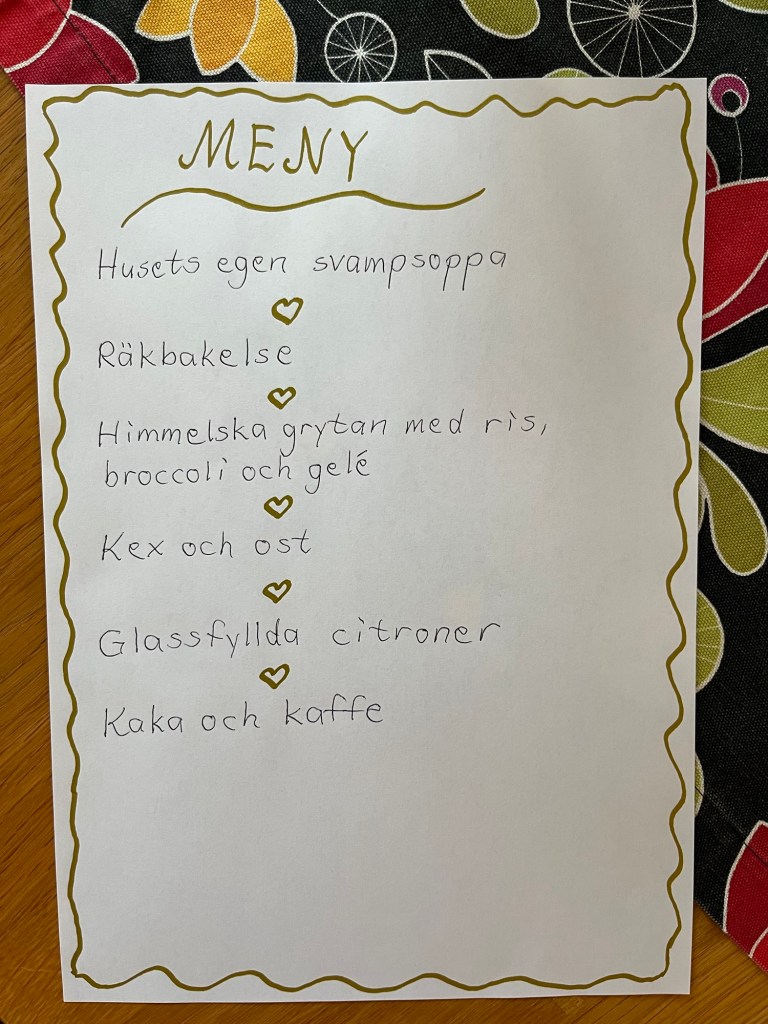 MENY
Husets egen svampsoppa
Räkbakelse
Himmelska grytan med ris,
broccoli och gelé
Kex och ost
Glassfyllda citroner
Kaka och kaffe